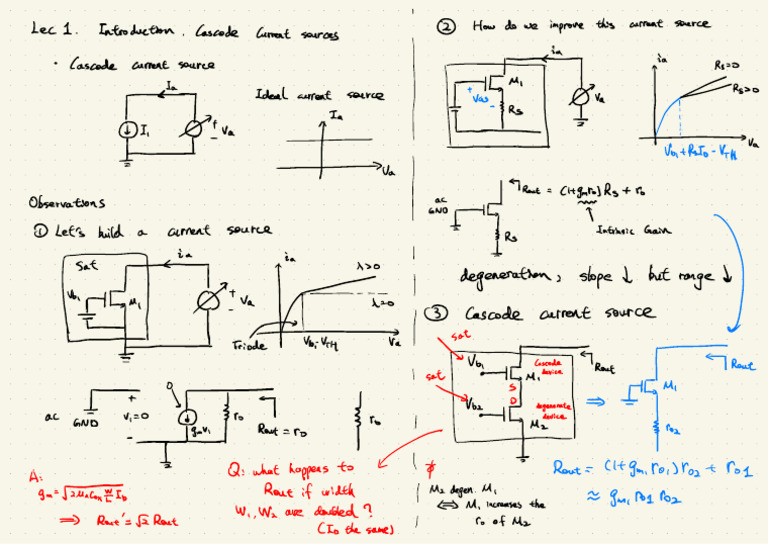 Lec 1. Introduction, Cascode Current sources
• Cascode current source
Ia
I1
+
−
Va
Ideal current source
Ia
Va
Observations
① Let's build a current source
Sat
ia
Vb1
M1
+
−
Va
ia
λ>0
λ=0
Triode
Vb1-VTH
Va
ac
GND
+
V1=0
−
0
gmv1
ro
Rout = ro
ro
A:
gm = √2μnCox W/L ID
⇒ Rout' = √2 Rout
Q: what happens to
Rout if width
W1, W2 are doubled?
(ID the same)
② How do we improve this current source
ia
M1
+
VGS
−
RS
Va
ia
RS=0
RS>0
Va
Vb1+RSID-VTH
ac
GND
RS
Rout = (1+gmro)RS + ro
Intrinsic Gain
degeneration, slope ↓ but range ↓
③ Cascode current source
sat
sat
Vb1
Cascode
device
M1
S
D
Vb2
degenerate
device
M2
Rout
⇒
Rout
M1
ro2
M2 degen. M1
⟺ M1 increases the
ro of M2
Rout = (1+gm1 ro1) ro2 + ro1
≈ gm1 ro1 ro2